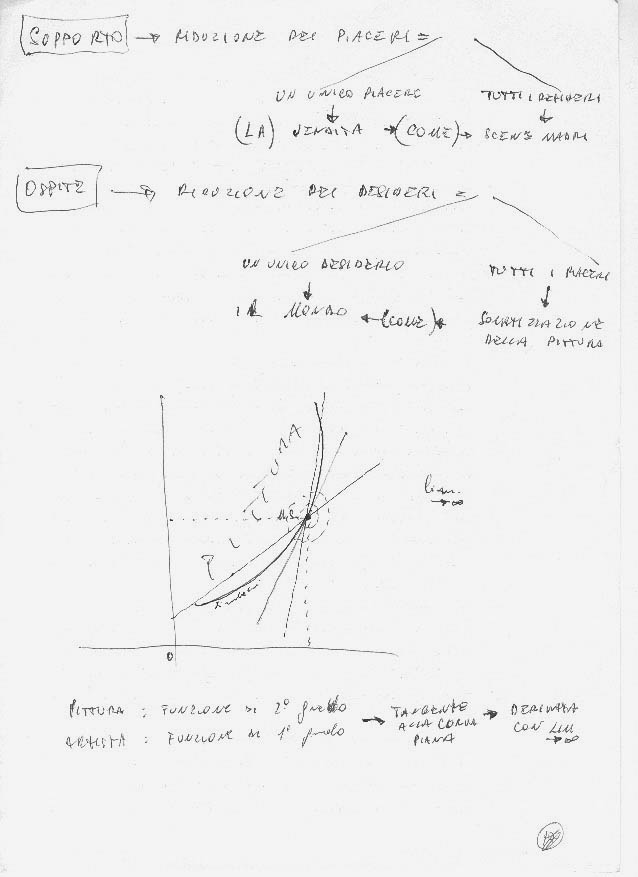 SOPPORTO → RIDUZIONE DEI PIACERI =
UN UNICO PIACERE
TUTTI I DESIDERI
(LA) VENDITA → (COME) → SCENE MADRI
OSPITE → RIDUZIONE DEI DESIDERI =
UN UNICO DESIDERIO
TUTTI I PIACERI
IL MONDO ← (COME) ← SOMATIZZAZIONE
DELLA PITTURA
PITTURA
lim.
→∞
0
PITTURA : FUNZIONE DI 2° grado → TANGENTE ALLA CURVA PIANA → DERIVATA CON LIM →∞
ARTISTA : FUNZIONE DI 1° grado